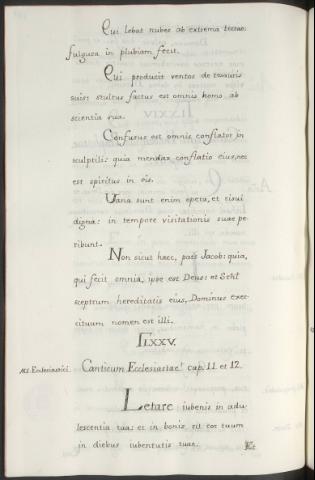 Qui lebat nubes ab extrema terrae:
fulgura in plubiam fecit.
Qui producit ventos de tesauris
suis: stultus factus est omnis homo ab
scientia sua.
Confusus est omnis conflator in
sculptili: quia mendax conflatio eius, nec
est spiritus in eis.
Uana sunt enim opera, et risui
digna: in tempore visitationis suae pe-
ribunt.
Non sicut haec, pars Jacob: quia,
qui fecit omnia, ipse est Deus: et Srhl
sceptrum hereditatis eius, Dominus exer-
cituum nomen est illi.
TLXXV.
Ms. Ecclesiastici. Canticum Ecclesiastae cap. 11. et 12.
Letare iubenis in adu-
lescentia tua: et in bonis sit cor tuum
in diebus iubentutis tuae.